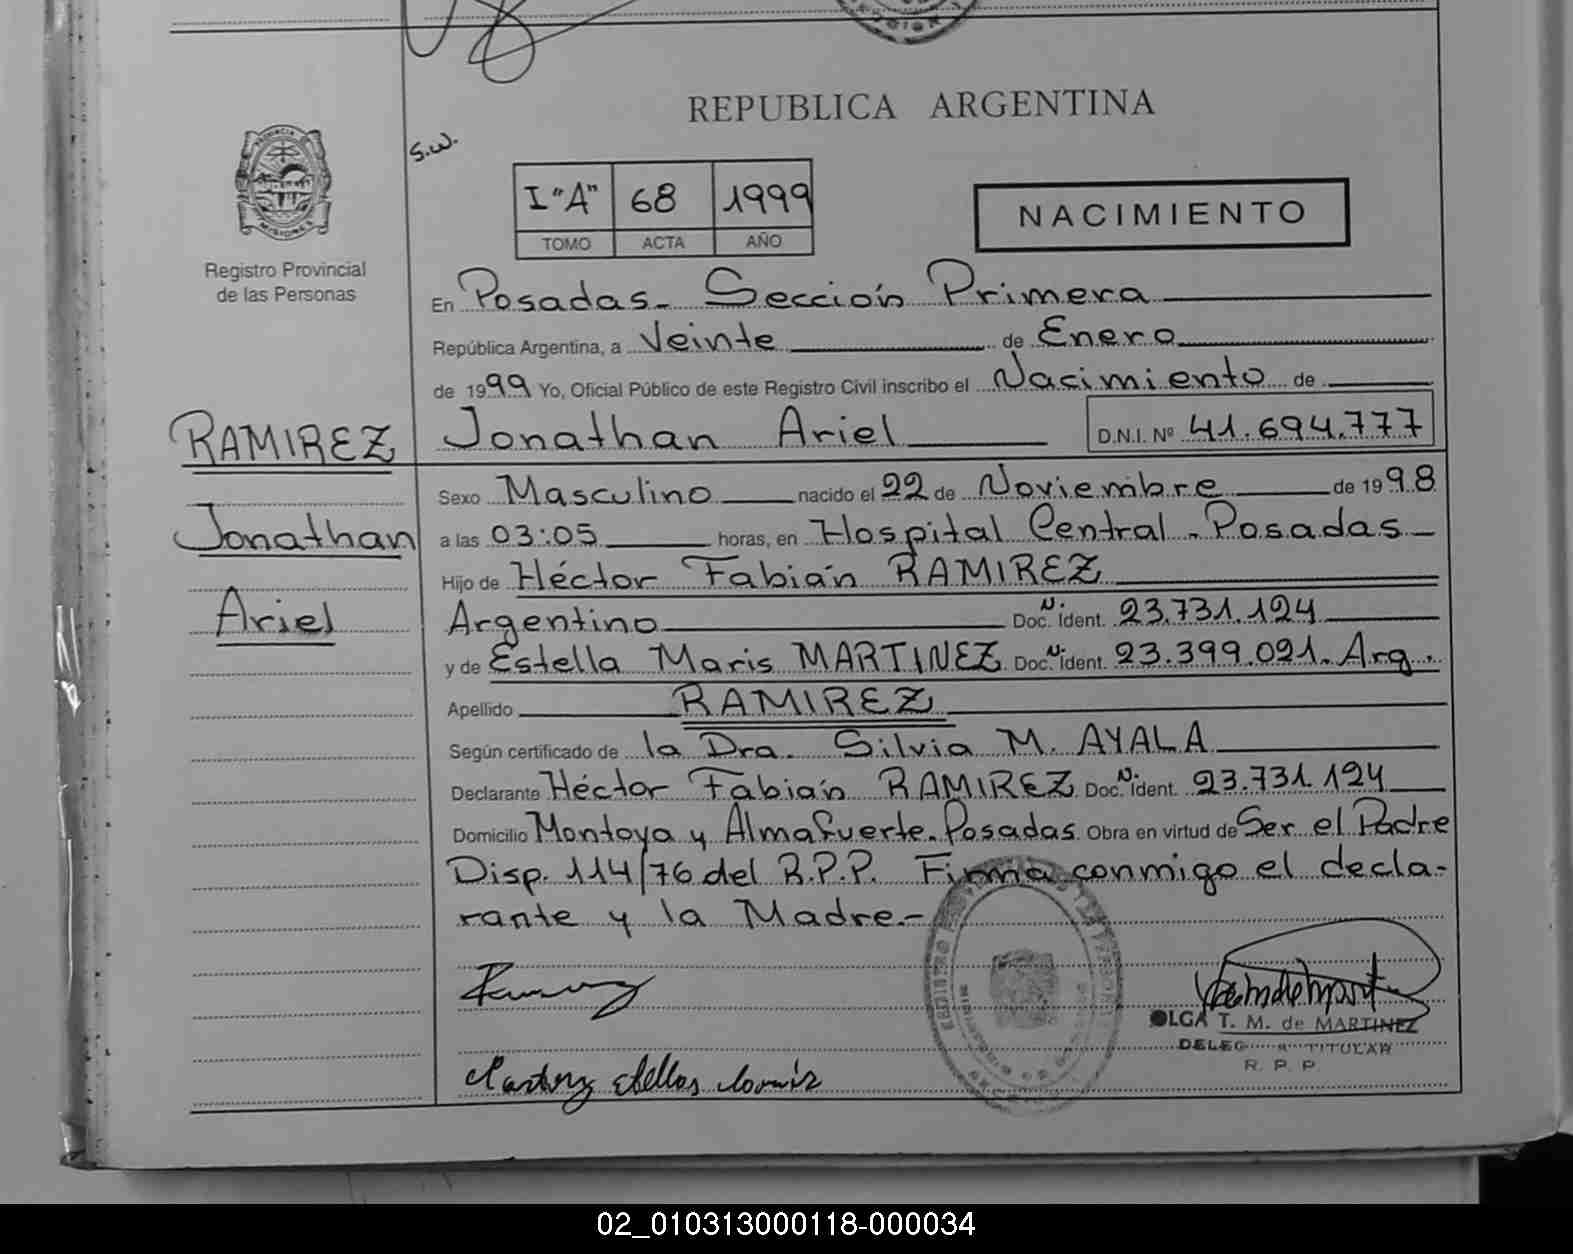 REPUBLICA ARGENTINA
S.W.
PROVINCIA
MISIONES
Registro Provincial
de las Personas
I "A" 68 1999
TOMO ACTA AÑO
NACIMIENTO
En Posadas - Sección Primera
República Argentina, a Veinte de Enero
de 1999 Yo, Oficial Público de este Registro Civil inscribo el Nacimiento de
RAMIREZ
Jonathan Ariel D.N.I. Nº 41.694.777
Sexo Masculino nacido el 22 de Noviembre de 1998
Jonathan
a las 03:05 horas, en Hospital Central - Posadas
Hijo de Héctor Fabián RAMIREZ
Ariel
Argentino Doc. N. Ident. 23.731.124
y de Estella Maris MARTINEZ Doc. N. Ident. 23.399.021. Arg.
Apellido RAMIREZ
Según certificado de la Dra. Silvia M. AYALA
Declarante Héctor Fabián RAMIREZ Doc. N. Ident. 23.731.124
Domicilio Montoya y Almafuerte. Posadas Obra en virtud de Ser el Padre
Disp. 114/76 del R.P.P. Firma conmigo el decla-
rante y la Madre.-
OLGA T. M. de MARTINEZ
TITULAR
R. P. P
02_010313000118-000034